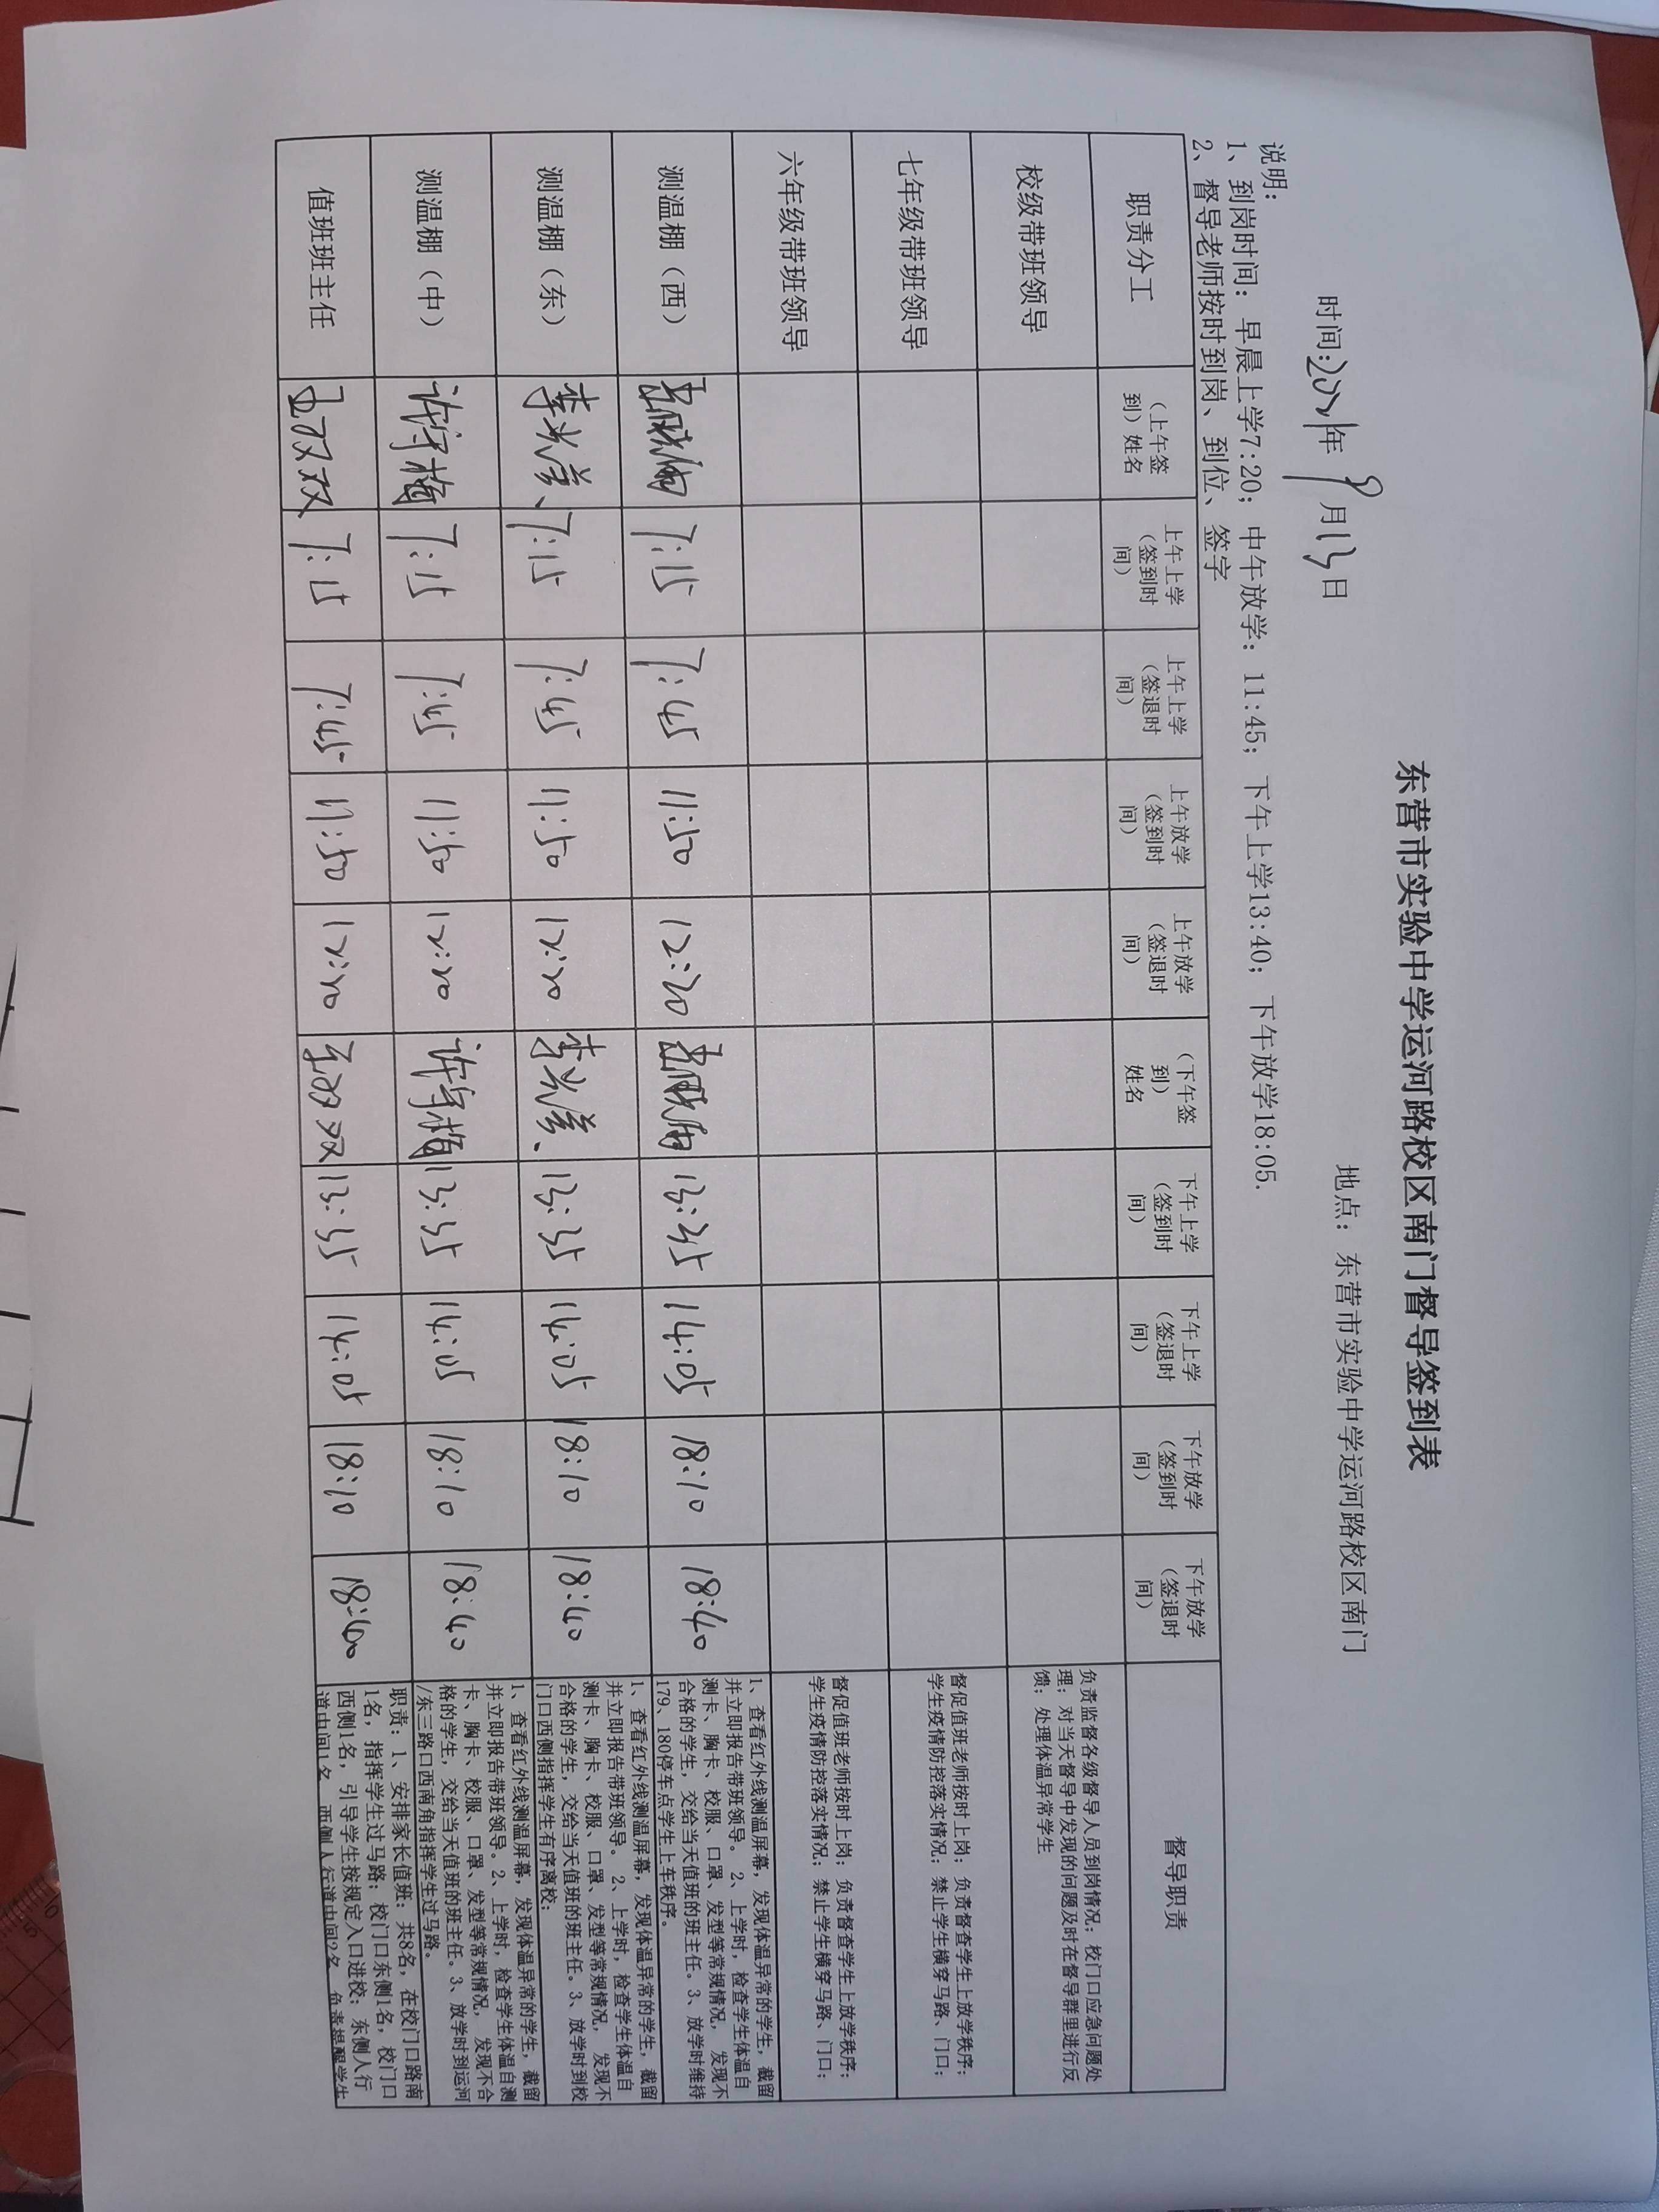 东营市实验中学运河路校区南门督导签到表
时间:2021年 9月13日 地点：东营市实验中学运河路校区南门
说明：
1、到岗时间：早晨上学7:20；中午放学：11:45；下午上学13:40；下午放学18:05.
2、督导老师按时到岗、到位、签字
职责分工 （上午签到）姓名 上午上学（签到时间） 上午上学（签退时间） 上午放学（签到时间） 上午放学（签退时间） （下午签到）姓名 下午上学（签到时间） 下午上学（签退时间） 下午放学（签到时间） 下午放学（签退时间） 督导职责
校级带班领导
负责监督各级督导人员到岗情况；校门口应急问题处
理；对当天督导中发现的问题及时在督导群里进行反
馈；处理体温异常学生
七年级带班领导
督促值班老师按时上岗；负责督查学生上放学秩序；
学生疫情防控落实情况；禁止学生横穿马路、门口；
六年级带班领导
督促值班老师按时上岗；负责督查学生上放学秩序；
学生疫情防控落实情况；禁止学生横穿马路、门口；
测温棚（西） 7:15 7:45 11:50 12:20 13:35 14:05 18:10 18:40
1、查看红外线测温屏幕，发现体温异常的学生，截留
并立即报告带班领导。 2、上学时，检查学生体温自
测卡、胸卡、校服、口罩、发型等常规情况，发现不
合格的学生，交给当天值班的班主任。3、放学时维持
179、180停车点学生上车秩序。
测温棚（东） 李光美 7:15 7:45 11:50 12:20 李光美 13:35 14:05 18:10 18:40
1、查看红外线测温屏幕，发现体温异常的学生，截留
并立即报告带班领导。 2、上学时，检查学生体温自
测卡、胸卡、校服、口罩、发型等常规情况，发现不
合格的学生，交给当天值班的班主任。3、放学时到校
门口西侧指挥学生有序离校；
测温棚（中） 7:15 7:45 11:50 12:20 13:35 14:05 18:10 18:40
1、查看红外线测温屏幕，发现体温异常的学生，截留
并立即报告带班领导。2、上学时，检查学生体温自测
卡、胸卡、校服、口罩、发型等常规情况，发现不合
格的学生，交给当天值班的班主任。3、放学时到运河
/东三路口西南角指挥学生过马路。
值班班主任 7:15 7:45 11:50 12:20 13:35 14:05 18:10 18:40
职责：1、安排家长值班：共8名，在校门口路南
1名，指挥学生过马路；校门口东侧1名，校门口
西侧1名，引导学生按规定入口进校；东侧人行
道中间1名，西侧人行道中间2名，负责提醒学生